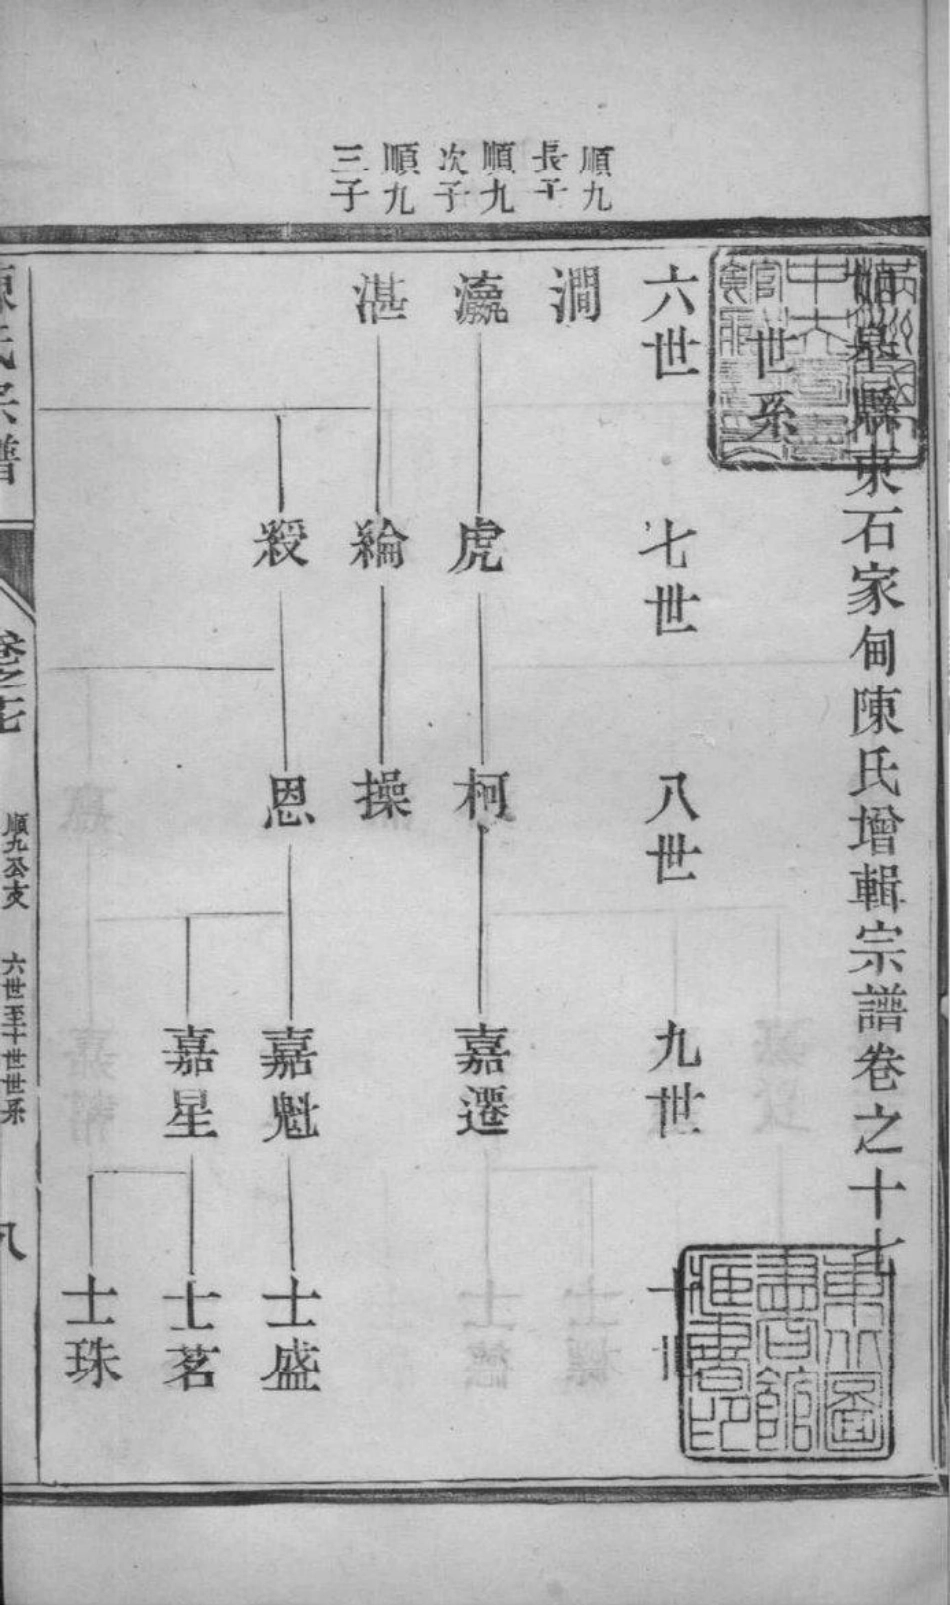 順九
長子
順九
次子
順九
三子
縣東石家甸陳氏增輯宗譜卷之十七
世系
六世
七世
八世
九世
十世
澗
瀛
虎
柯
嘉遷
湛
綸
操
恩
嘉魁
士盛
嘉星
士茗
士珠
陳氏宗譜
卷之十七
順九公支
六世至十世世系
八